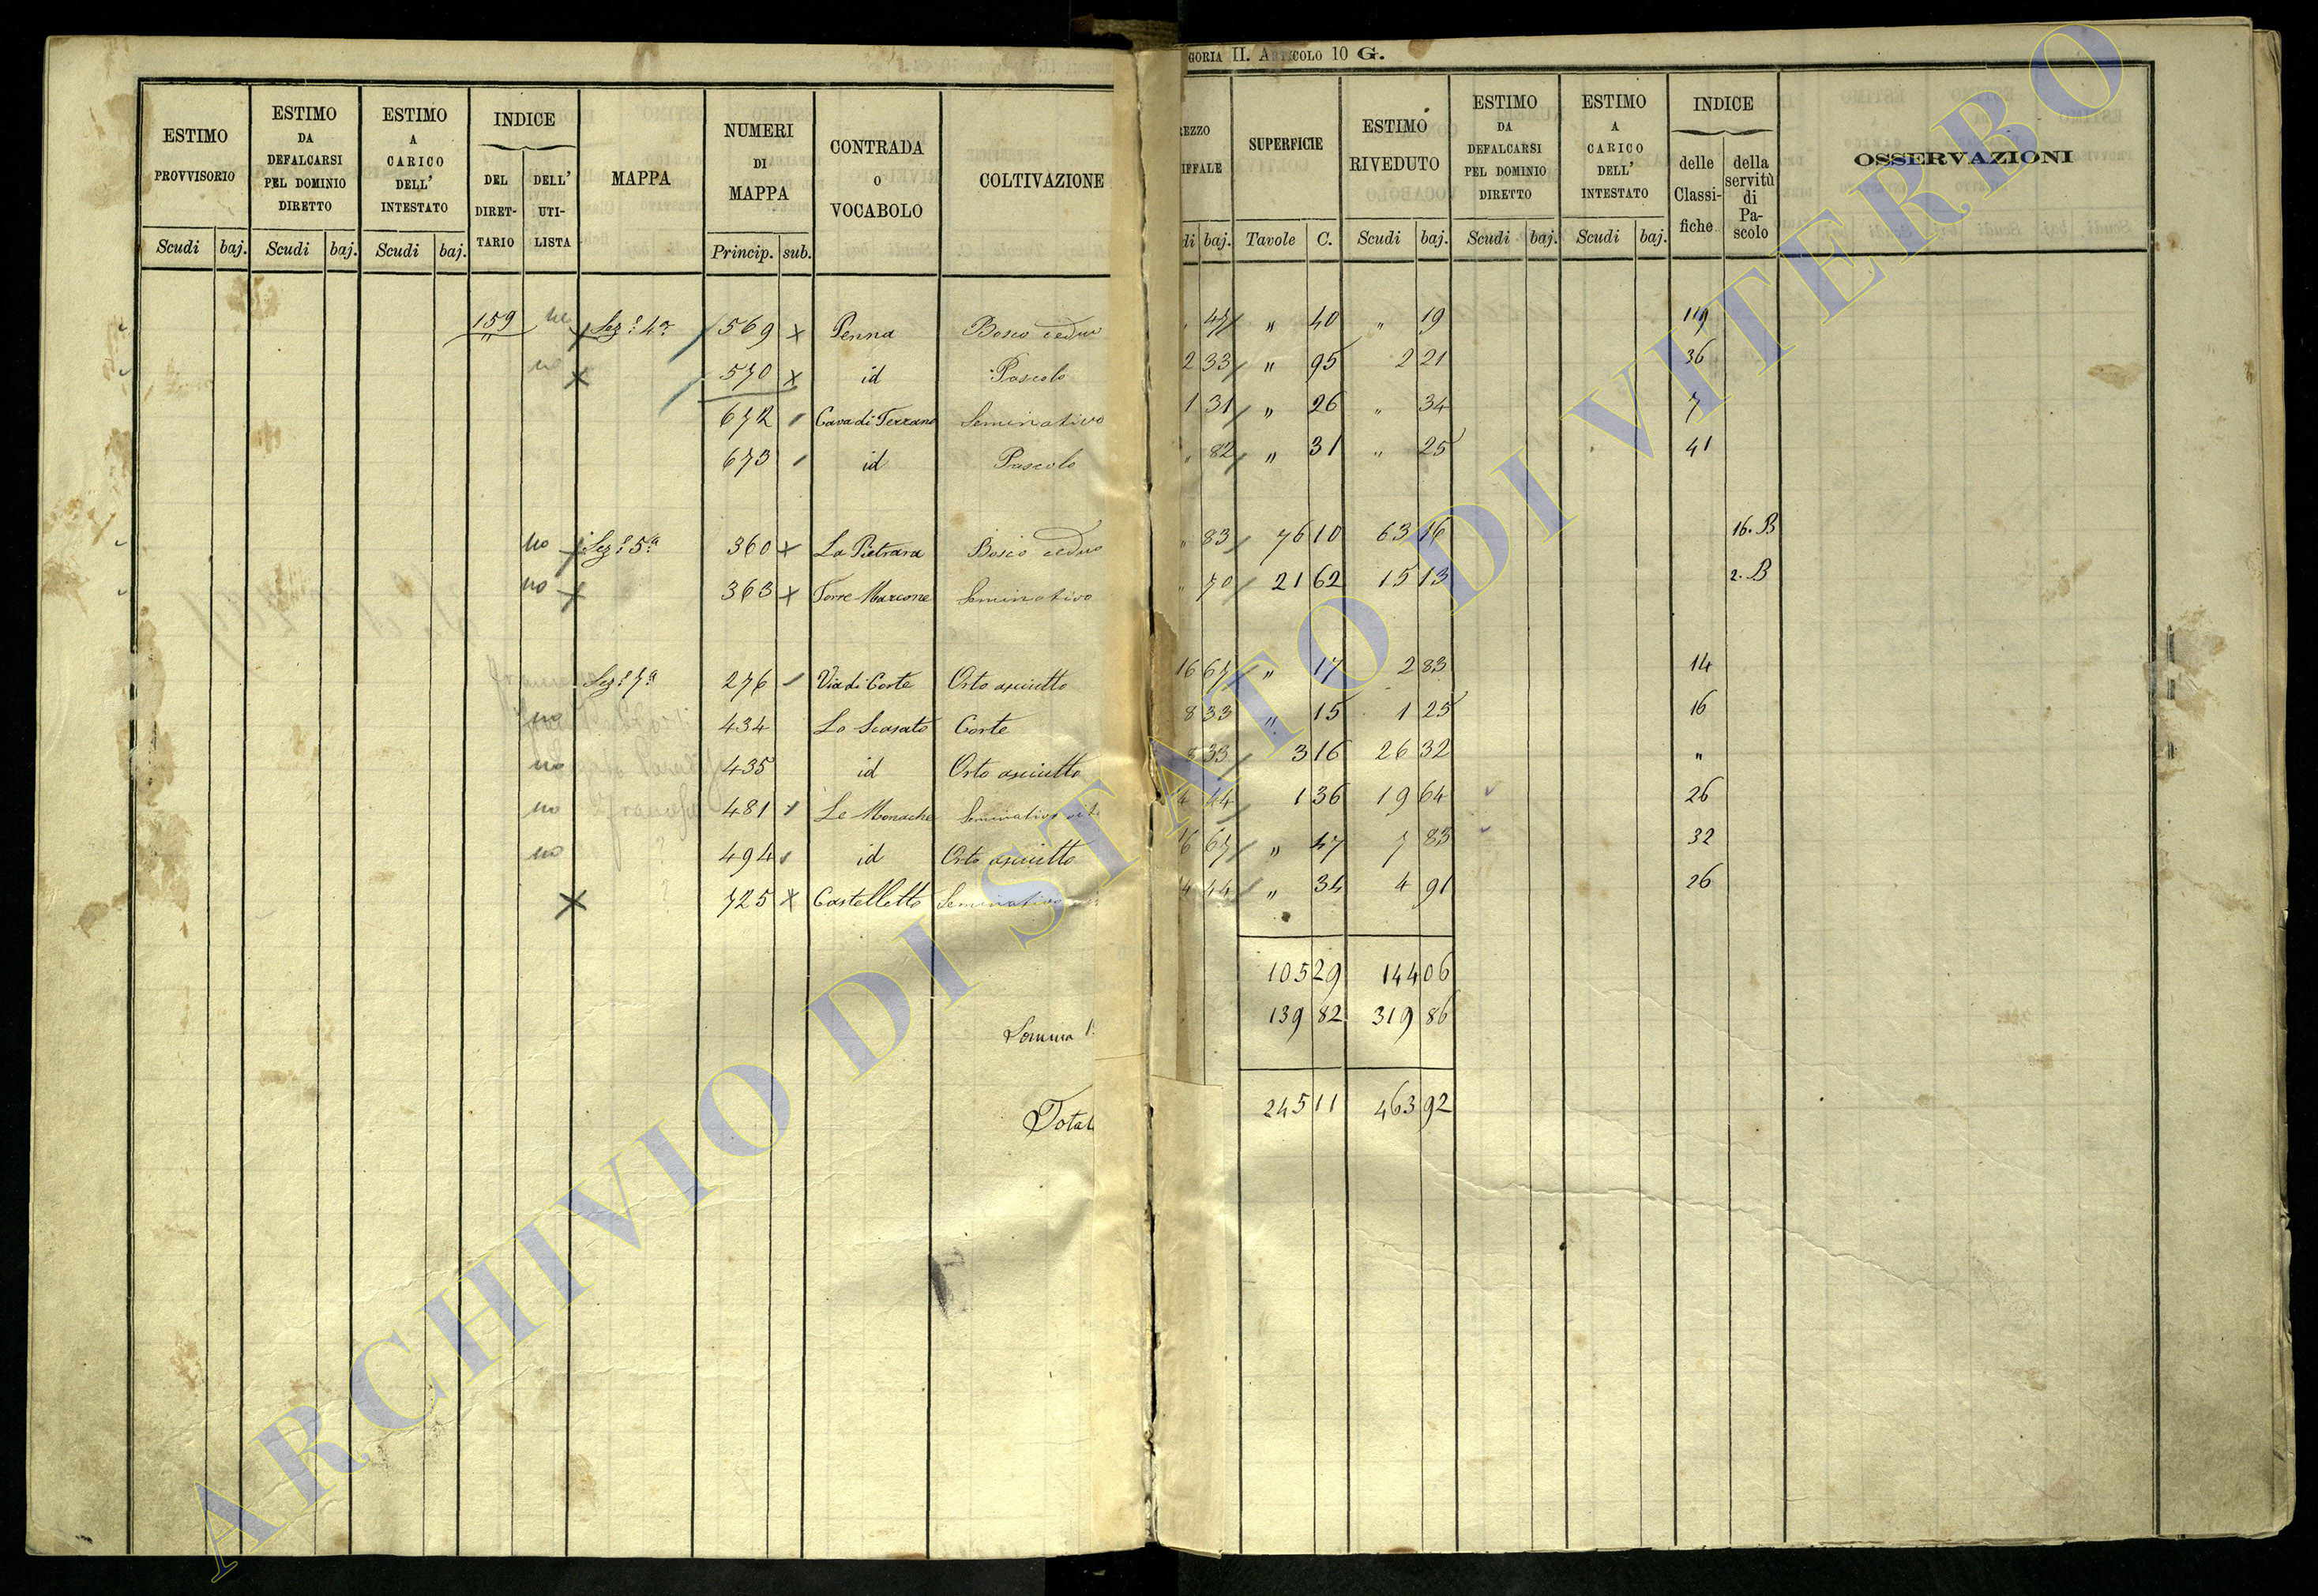 GORIA II. ARTICOLO 10 G.
ESTIMO PROVVISORIO | ESTIMO DA DEFALCARSI PEL DOMINIO DIRETTO | ESTIMO A CARICO DELL' INTESTATO | INDICE DEL DIRETTARIO | DELL' UTILISTA | MAPPA | NUMERI DI MAPPA | CONTRADA O VOCABOLO | COLTIVAZIONE | REZZO IFFALE | SUPERFICIE | ESTIMO RIVEDUTO | ESTIMO DA DEFALCARSI PEL DOMINIO DIRETTO | ESTIMO A CARICO DELL' INTESTATO | INDICE delle Classifiche | della servitù di Pascolo | OSSERVAZIONI
Scudi baj. Scudi baj. Scudi baj. Princip. sub. di baj. Tavole C. Scudi baj. Scudi baj. Scudi baj.
159 no x Sez.e 4a 569 x Penna Bosco ceduo " 47 " 40 " 19 119
no x 570 x id Pascolo 2 33 " 95 2 21 36
672 Cava di Terrano Seminativo 1 31 " 26 " 34 7
673 id Pascolo " 82 " 31 " 25 41
no x Sez.e 5a 360 x La Pietrara Bosco ceduo " 83 76 10 63 16 16. B
no x 363 x Torre Marcone Seminativo " 70 21 62 15 13 2. B
Sez.e 7a 276 Via di Corte Orto asciutto 16 67 " 17 2 83 14
no 434 Lo Scasato Corte 8 33 " 15 1 25 16
no 435 id Orto asciutto 8 33 3 16 26 32 "
no 481 Le Monache Seminativo vit 4 44 1 36 19 64 26
no 494 id Orto asciutto 16 67 " 47 7 83 32
x 725 x Castelletto Seminativo 14 44 " 34 4 91 26
105 29 144 06
Somma 139 82 319 86
Total 245 11 463 92
ARCHIVIO DI STATO DI VITERBO